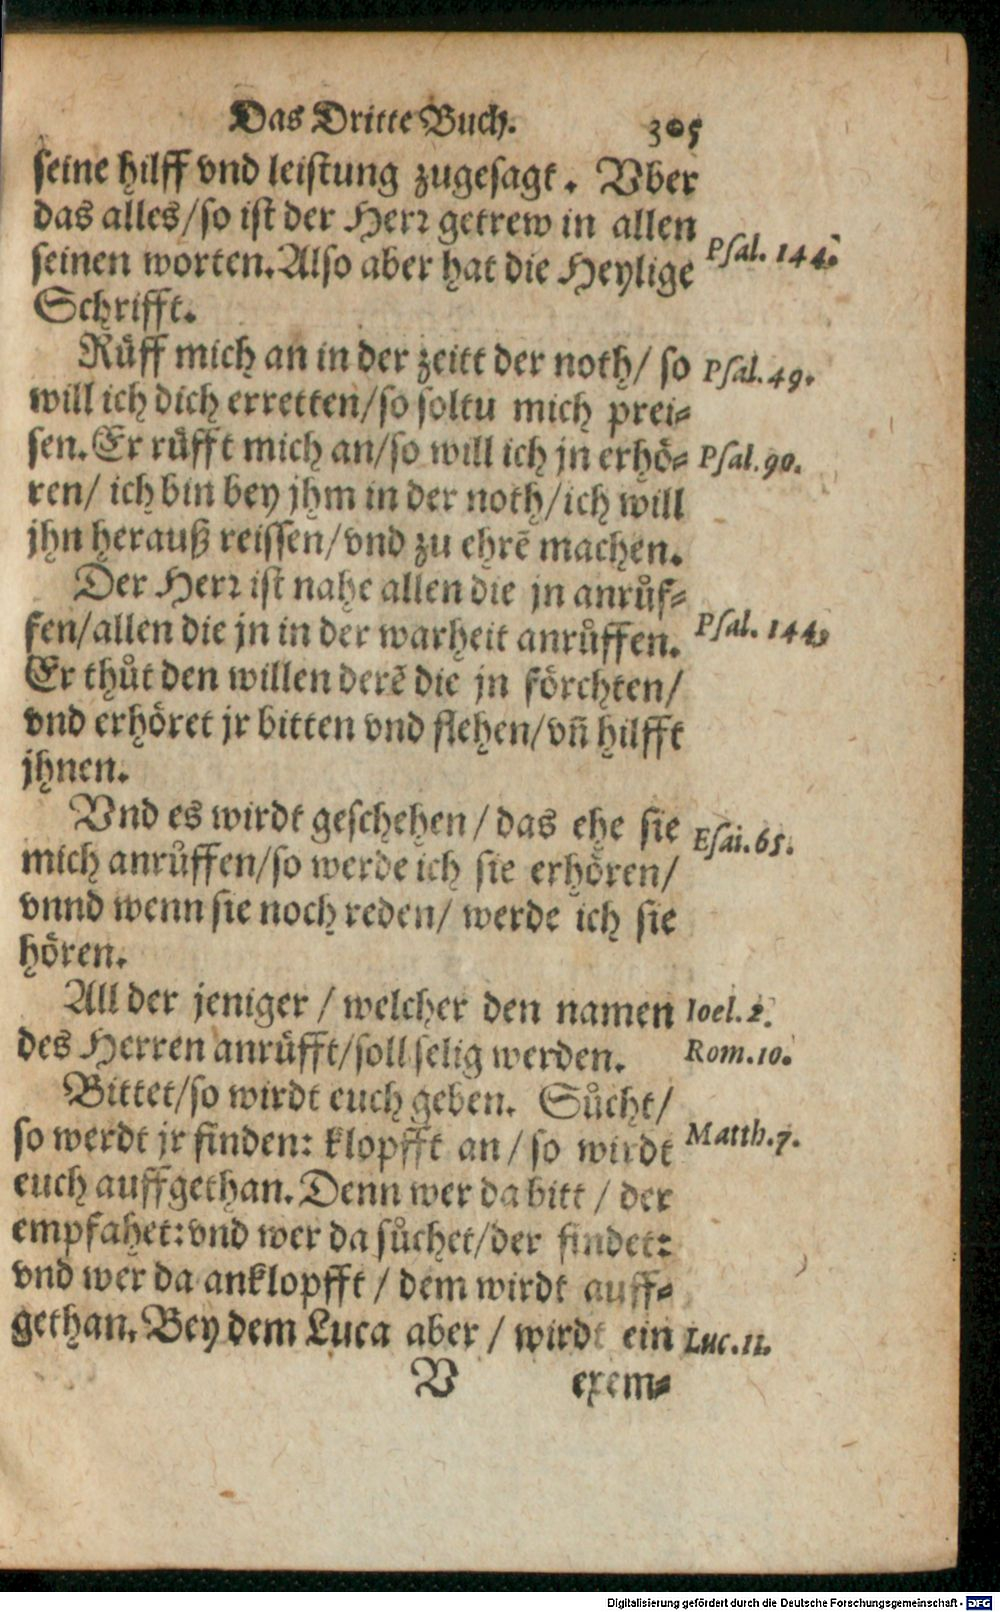 Das Dritte Buch. 305
seine hilff vnd leistung zugesagt. Vber
das alles/so ist der Herr getrew in allen
seinen worten. Also aber hat die Heylige Psal. 144.
Schrifft.
Rüff mich an in der zeitt der noth/ so Psal. 49.
will ich dich erretten/so soltu mich prei-
sen. Er rüfft mich an/so will ich jn erhö- Psal. 90.
ren/ ich bin bey jhm in der noth/ich will
jhn herauß reissen/vnd zu ehrē machen.
Der Herr ist nahe allen die jn anrůf-
fen/allen die jn in der warheit anrůffen. Psal. 144,
Er thůt den willen derē die jn förchten/
vnd erhöret jr bitten vnd flehen/vñ hilfft
jhnen.
Vnd es wirdt geschehen/ das ehe sie Esai. 65.
mich anrůffen/so werde ich sie erhören/
vnnd wenn sie noch reden/ werde ich sie
hören.
All der jeniger / welcher den namen Ioel. 2.
des Herren anrüfft/soll selig werden. Rom. 10.
Bittet/so wirdt euch geben. Sůcht/
so werdt jr finden: klopfft an/ so wirdt Matth. 7.
euch auffgethan. Denn wer da bitt / der
empfahet: vnd wer da sůchet/der findet:
vnd wer da anklopfft / dem wirdt auff-
gethan. Bey dem Luca aber / wirdt ein Luc. 11.
V exem-
Digitalisierung gefördert durch die Deutsche Forschungsgemeinschaft - DFG